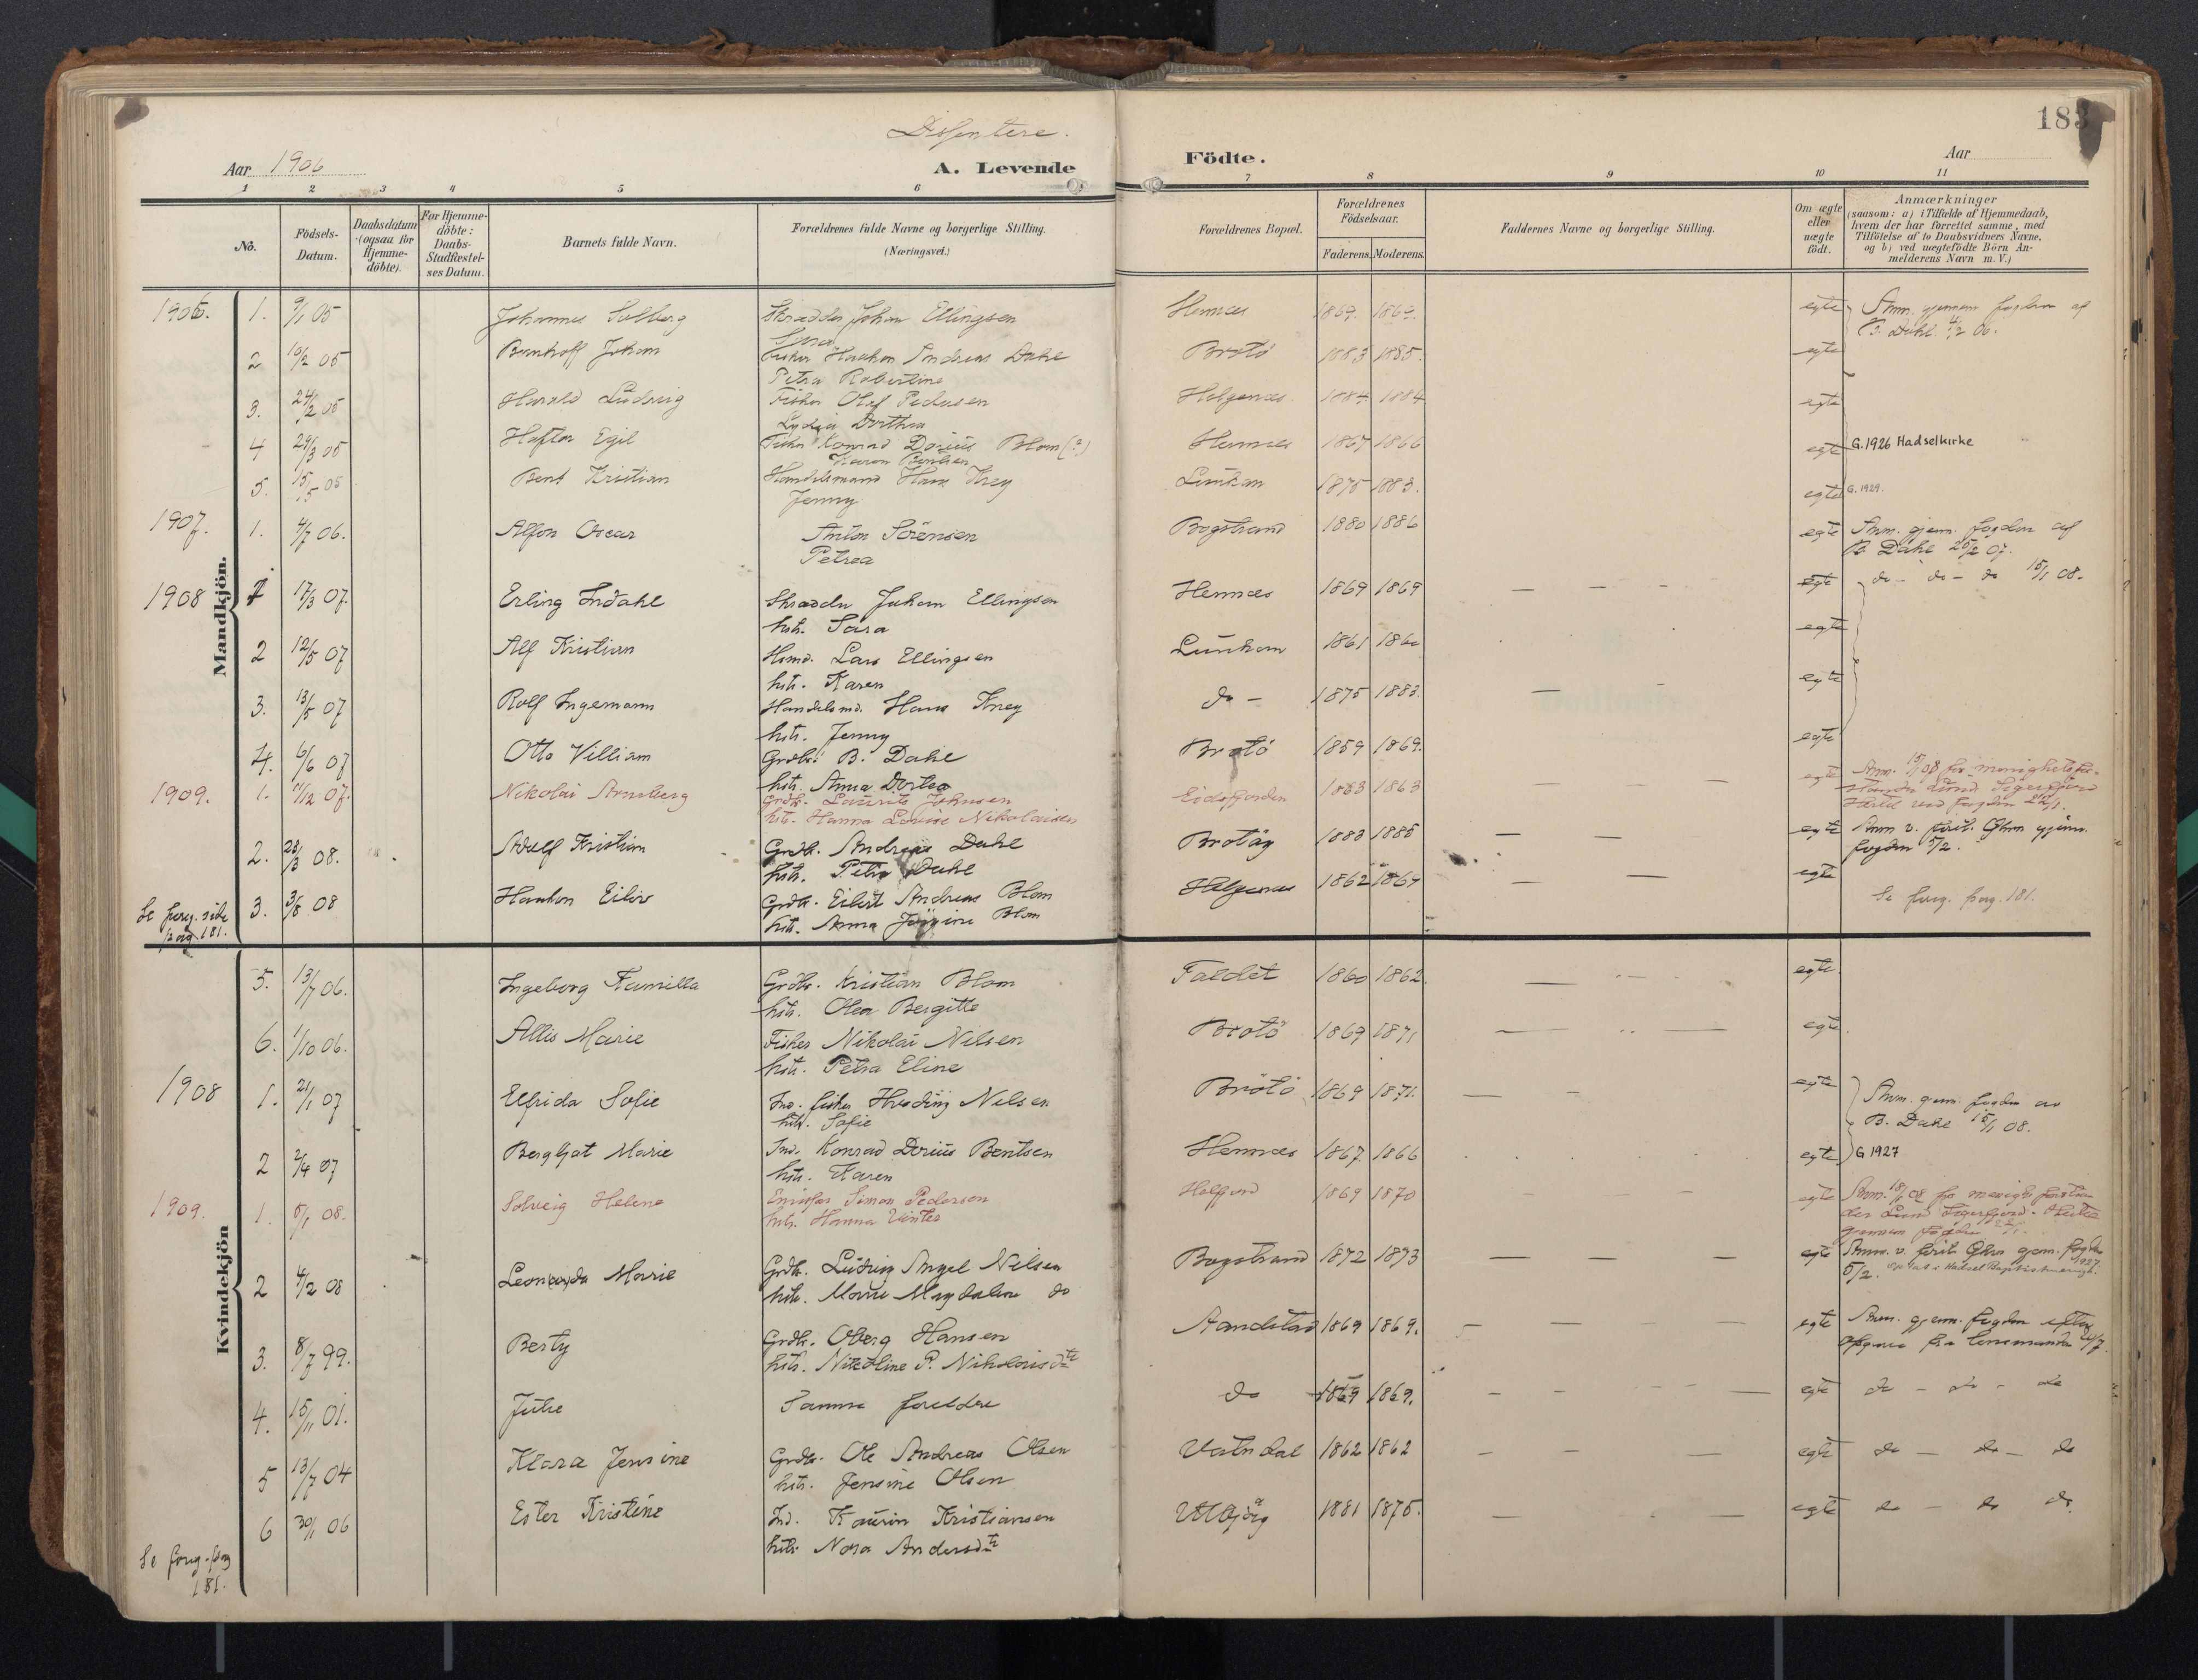 183
Disentere.
Aar 1906
A. Levende
Födte.
Aar
1 2 3 4 5 6 7 8 9 10 11
No.
Födsels-Datum.
Daabsdatum (ogsaa for Hjemme-döbte).
For Hjemme-döbte: Daabs-Stadfæstel-ses Datum.
Barnets fulde Navn.
Forældrenes fulde Navne og borgerlige Stilling.
(Næringsvei.)
Forældrenes Bopæl.
Forældrenes Födselsaar.
Faderens. Moderens.
Faddernes Navne og borgerlige Stilling.
Om ægte eller uægte födt.
Anmærkninger
(saasom: a) i Tilfælde af Hjemmedaab,
hvem der har forrettet samme, med
Tilföielse af to Daabsvidners Navne,
og b) ved uægtefödte Börn An-
melderens Navn m. V.)
Mandkjön.
1906. 1. 9/1 05 Johannes Solberg Skrædder Johan Ellingsen Hennes 1869. 1869. egte Anm. gjennem fogden af
Sara B. Dahl 4/2 06.
2 10/2 05 Johan Fisker Haakon Andreas Dahl Brotö 1883 1885. egte
Petra Robertine
3. 24/2 05 Harald Ludvig Fisker Olaf Pedersen Helgenes 1884 1884 egte
Lydia Dorthea
4 29/3 05 Egil Fisker Konrad Dorius Blom (?) Hennes 1867 1866 egte G. 1926 Hadselkirke
Karen Bentsen
5. 15/5 05 Bent Kristian Handelsmand Hans Krey 1875 1883. egte G. 1929.
Jenny
1907. 1. 4/7 06. Alfon Oscar Anton Sörensen Bogstrand 1880 1886 egte Anm. gjenn. fogden af
Petrea B. Dahl 25/2 07.
1908 1 17/3 07. Erling Indahl Skrædder Johan Ellingsen Hennes 1869 1869 — — egte do - do - do 15/1 08.
hstr. Sara
2 12/5 07 Alf Kristian Hsmd. Lars Ellingsen 1861 1860 egte
hstr. Karen
3. 13/5 07 Rolf Ingemann Handelsmd. Hans Krey do - 1875 1883. — - egte
hstr. Jenny
4. 6/6 07 Otto Villiam Grdbr. B. Dahl Brotö 1859 1869. egte
hstr. Anna Dortea
1909. 1. 11/12 07. Nikolai Arneberg Grdbr. Laurits Johnsen Eidsfjorden 1883 1863 — — egte Anm. 15/1 08 for menighetsfor-
hstr. Hanna Lovise Nikolaisen
2. 23/3 08. Adolf Kristian Grdbr. Andreas Dahl Brotöy 1883 1885 — — egte Anm v. forst. gjenn.
hstr. Petra Dahl fogden 5/2.
3. 3/8 08 Haakon Eiliv Grdbr. Eilert Andreas Blom Helgenes 1862 1864 — — egte
hstr. Anna Jörgine Blom Se forrg. pag. 181.
Se foreg. side
pag. 181.
Kvindekjön
5. 13/7 06. Ingeborg Kamilla Grdbr. Kristian Blom Faldet 1860 1862. egte.
hstr. Olea Bergitte
6. 1/10 06. Allis Marie Fisker Nikolai Nilsen Brotö 1869 1871 egte.
hstr. Petra Eline
1908 1. 21/1 07 Elfrida Sofie Ind. fisker Nilsen Brotö 1869 1871. — — egte Anm. gjenn. fogden av
hstr. Sofie B. Dahl 15/1 08.
2 2/4 07 Bergljot Marie Ind. Konrad Dorius Bentsen Hennes 1867. 1866 egte G 1927
hstr. Karen
1909. 1. 5/1 08. Solveig Helene Simon Pedersen 1869 1870 egte
hstr. Hanna
2 4/2 08 Leonarda Marie Grdbr. Ludvig Angel Nilsen Bogstrand 1872 1873 — — — egte Anm. v. forst. gjen. fogden
hstr. Marie Magdalene do 5/2. i Hadsel Baptistmenigh. 1927.
3. 8/7 99. Besty Grdbr. Oberg Hansen Sandstad 1869 1869. egte Anm. gjenn. fogden efter
hstr. Nikoline P. Nikolaisdtr. opgave fra lensmanden
4. 15/11 01. Julie Samme foreldre do 1869 1869. egte do - do - do
5 13/7 04 Klara Jensine Grdbr. Ole Andreas Olsen Vatndal 1862 1862 egte do - do - do
hstr. Jensine Olsen
6 30/1 06 Ester Kristine Ind. Kaurin Kristiansen 1881 1875. egte do - do do
hstr. Nora Andersdtr.
Se foreg. pag
181.